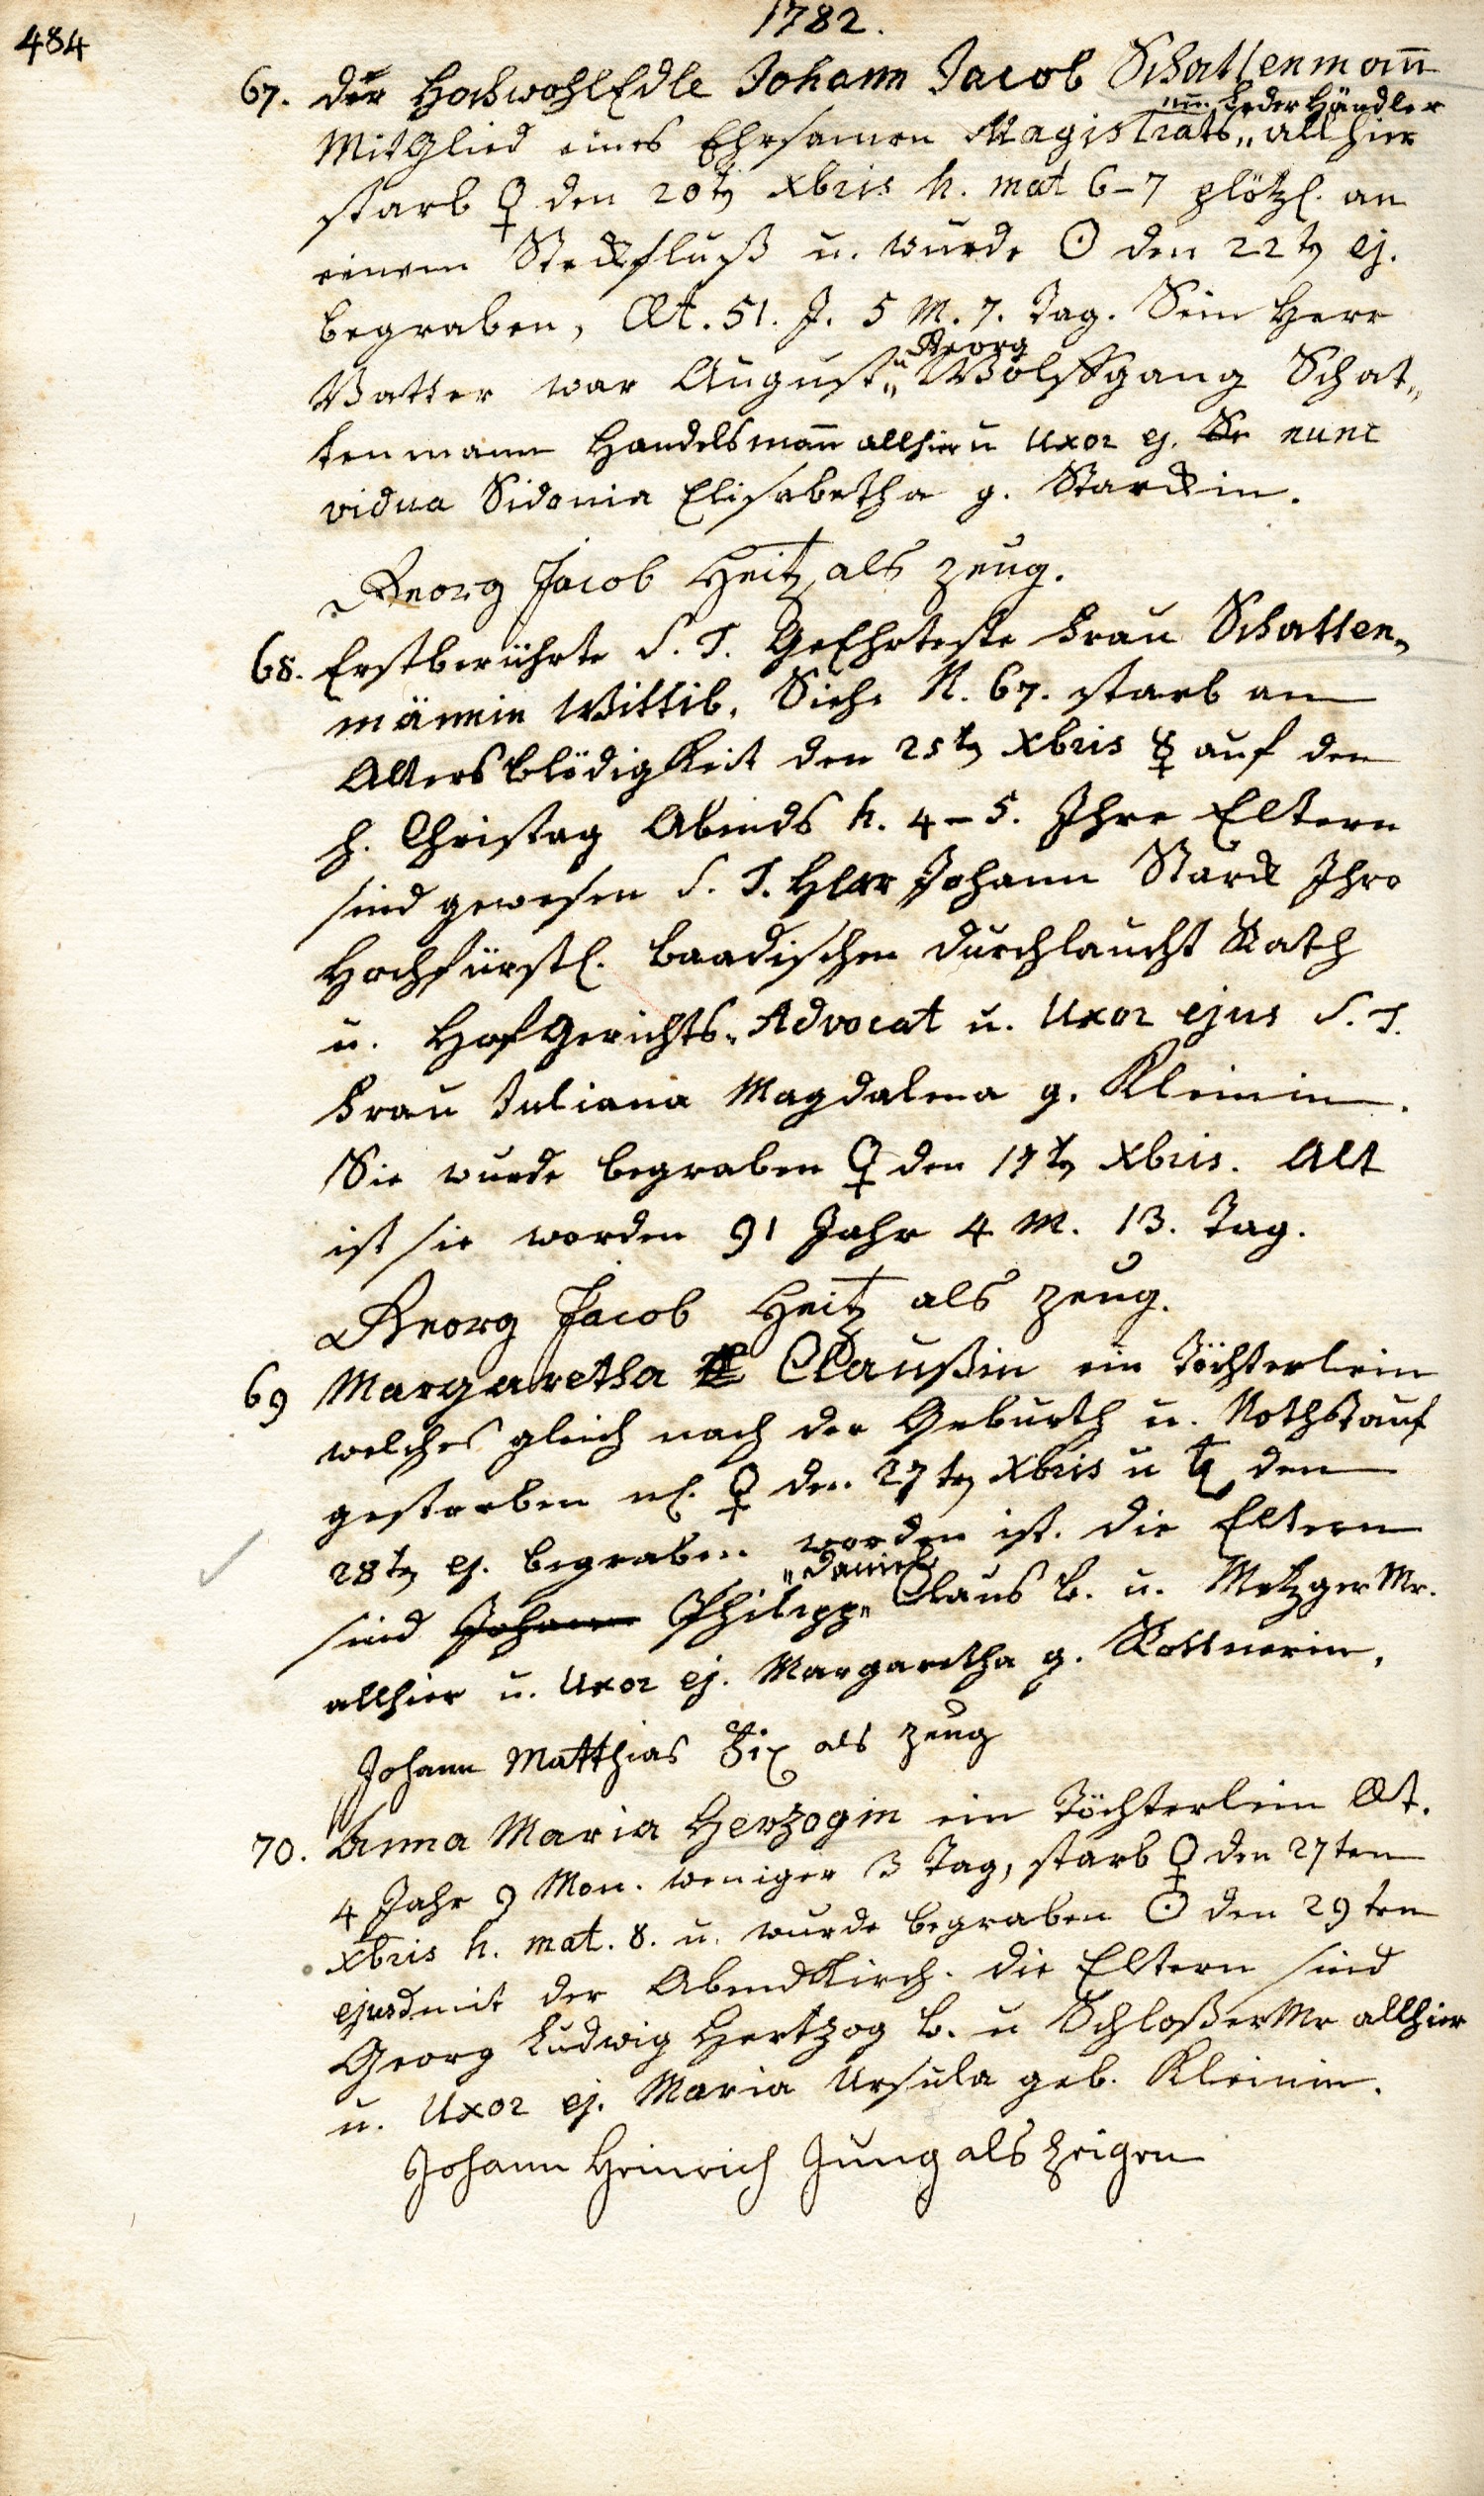 484
1782.
67. der HochwohlEdle Johann Jacob Schattenmañ
MitGlied eines Ehrsamen Magistrats „ u. LederHändler „ allhier
starb ♀ den 20tn Xbris h. mat 6-7 plötzl. an
einem Steckfluß u. wurde ☉ den 22tn ej.
begraben, Æt. 51. J. 5 M. 7. Tag. Sein Herr
Vatter war August „ Georg „ Wolffgang Schat„
tenmann Handelsmañ allhier u Uxor ej. nunc
vidua Sidonia Elisabetha g. Starckin.
Georg Jacob Heitz als zeug.
68. Erstberührte S. T. GeEhrteste Frau Schatten„
männin Wittib. Siehe N. 67. starb an
AltersBlödigKeit den 25tn Xbris ☿ auf den
h. Christag Abends h. 4-5. Ihre Eltern
sind gewesen S. T. Herr Johann Starck Ihro
Hochfürstl. baadischen Durchlaucht Rath
u. HofGerichts„Advocat u. Uxor ejus S. T.
Frau Juliana Magdalena g. Kleinin.
Sie wurde begraben ♀ den 17tn Xbris. Alt
ist sie worden 91 Jahr 4 M. 13. Tag.
Georg Jacob Heitz als zeug.
69 Margaretha Claußin ein Töchterlein
welches gleich nach der Geburth u. Nothtauf
gestorben nl. ♀ den 27tn Xbris u ♄ den
28tn ej. begraben worden ist. die Eltern
sind Johann Philipp „ Daniel „ Claus b. u. MetzgerMr.
allhier u. Uxor ej. Margaretha g. Rottnerin.
Johann Matthias Fix als zeug
70. Anna Maria Herzogin ein Töchterlein Æt.
4 Jahr 9 Mon. weniger 3 Tag, starb ♀ den 27ten
Xbris h. mat. 8. u. wurde begraben ☉ den 29ten
ejusd mit der AbendKirch. die Eltern sind
Georg Ludwig Hertzog b. u SchloßerMr allhier
u. Uxor ej. Maria Ursula geb. Kleinin.
Johann Heinrich Jung als Zeigen